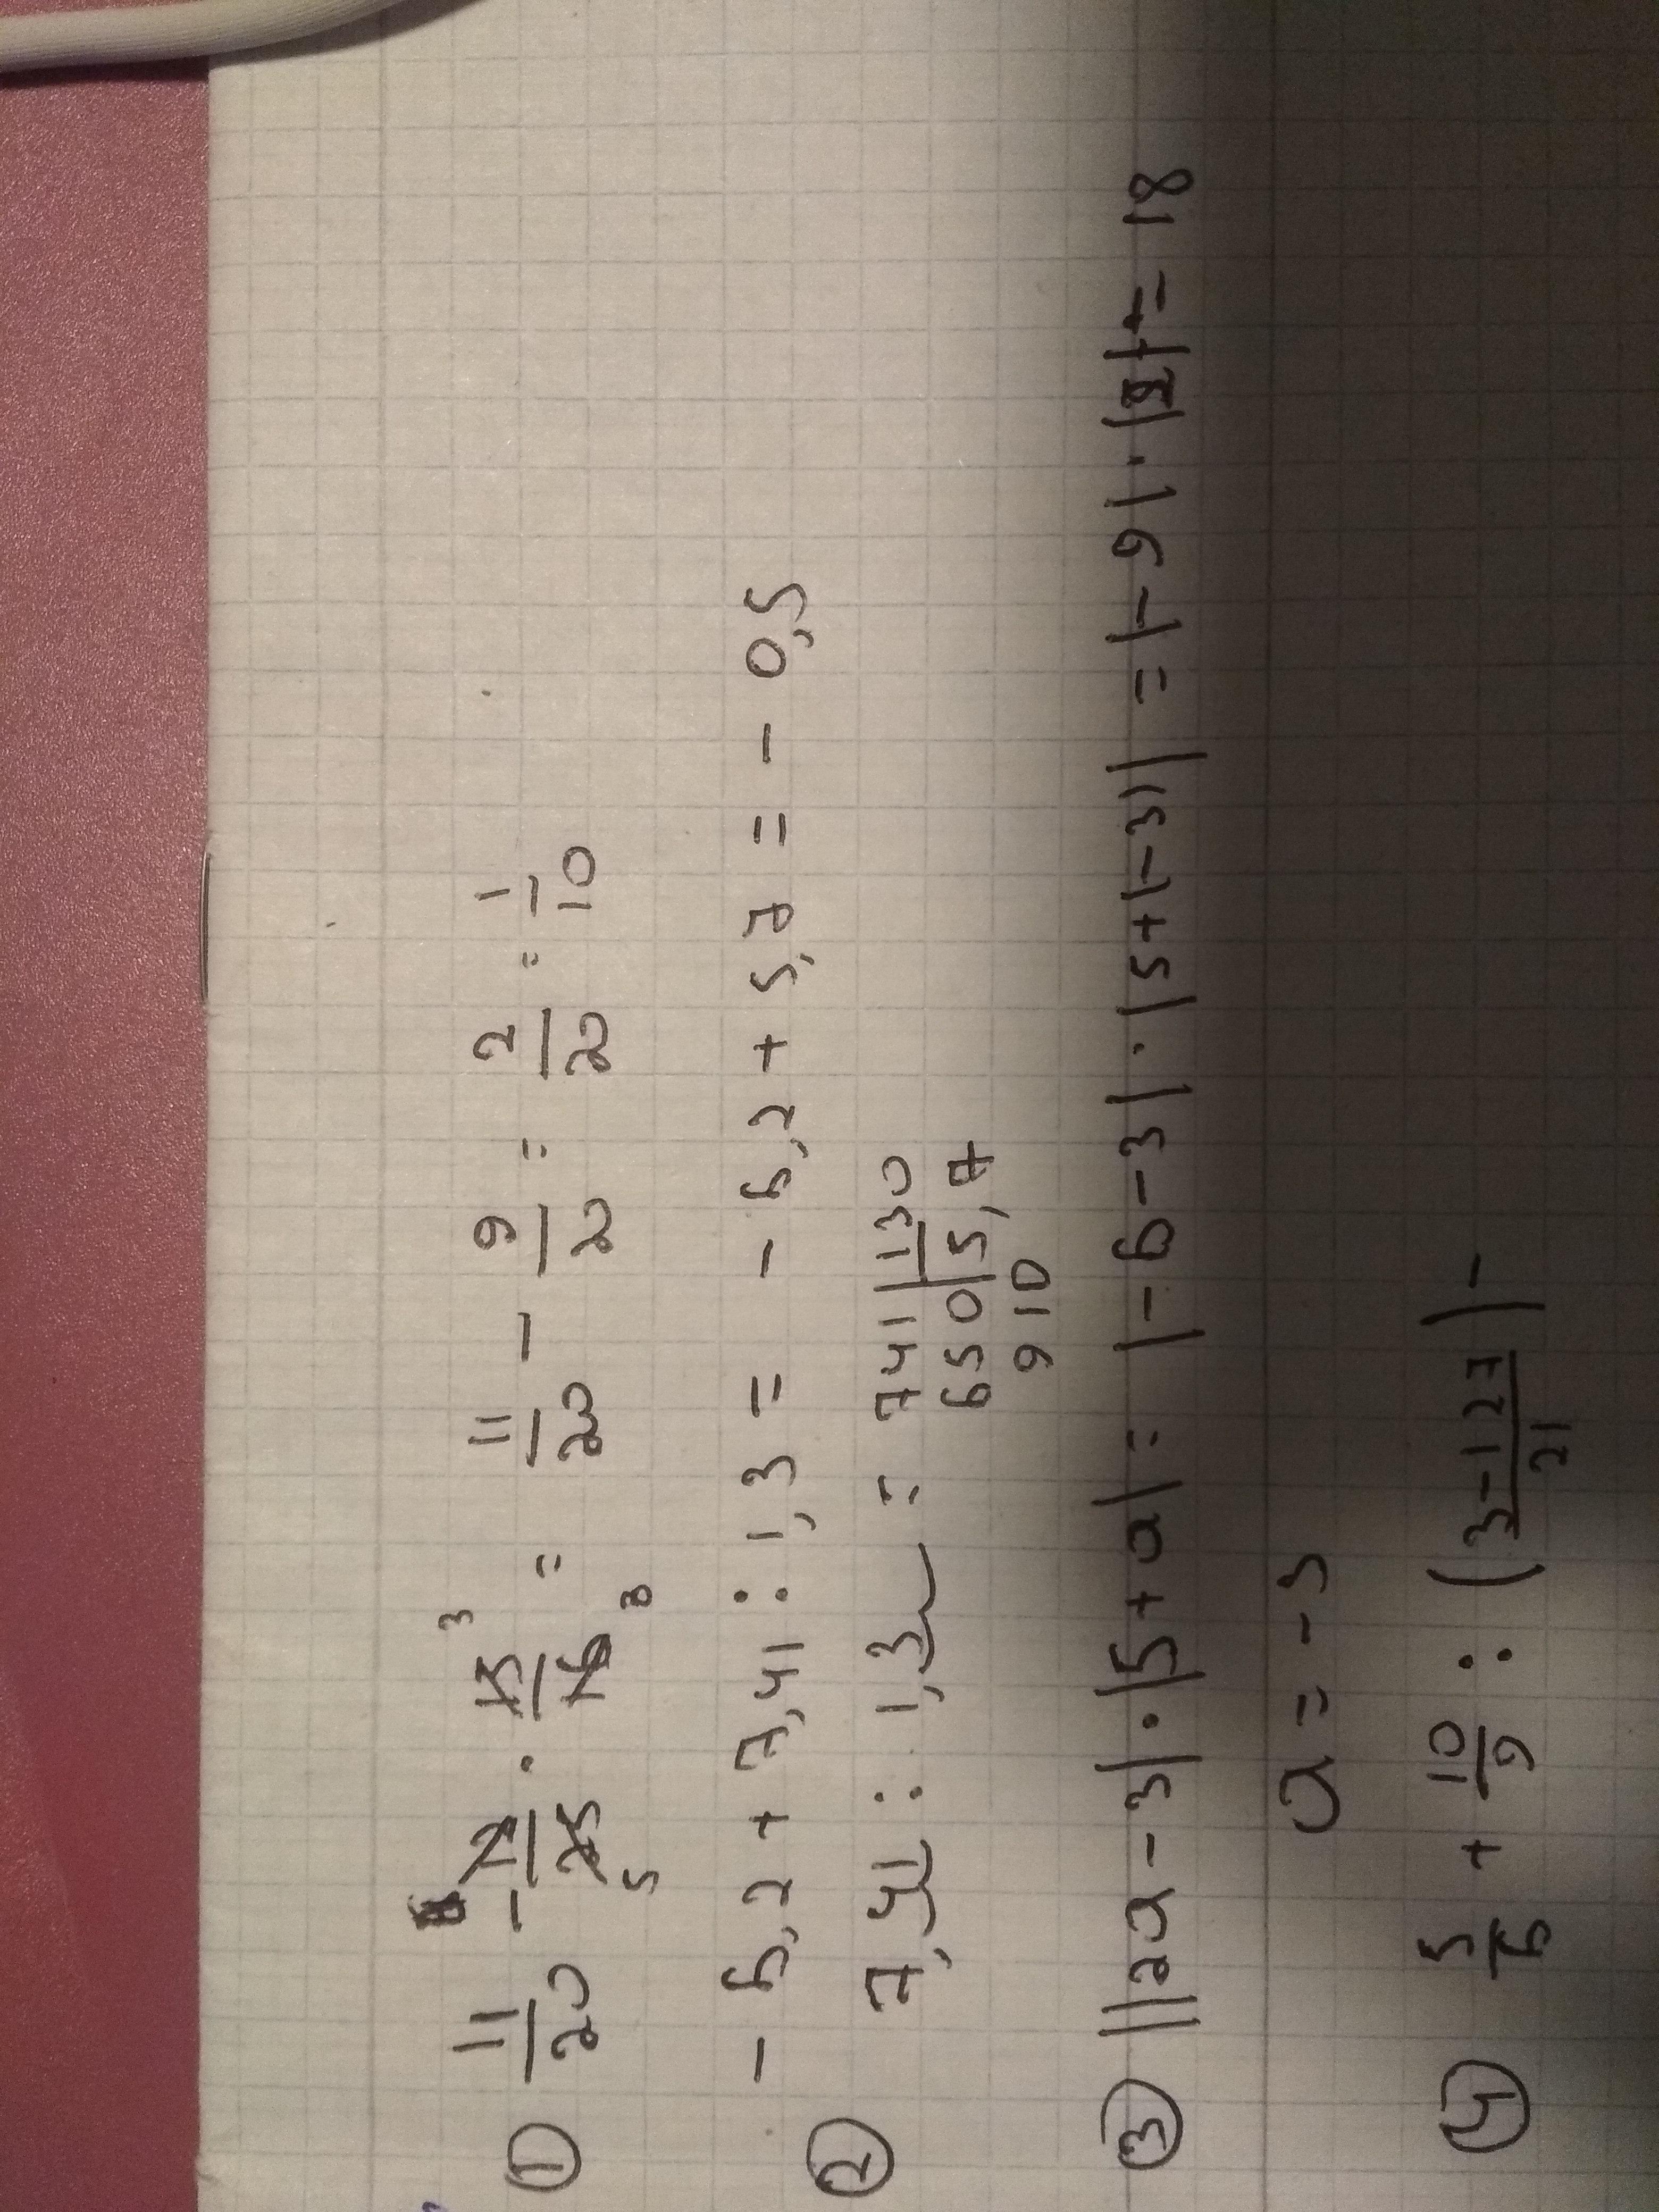 ① 11/20 - 12/25 · 15/16 = 11/20 - 9/20 = 2/20 = 1/10
3
5 8
② - 6,2 + 7,41 : 1,3 = - 6,2 + 5,7 = - 0,5
7,41 : 1,3 = 741 | 130
650 | 5,7
910
③ ||2a - 3| · |5 + a| = |- 6 - 3| · |5 + (- 3)| = |- 9| · |2| = 18
a = - 3
④ 5/6 + 10/9 : (3 - 1 27/21) -